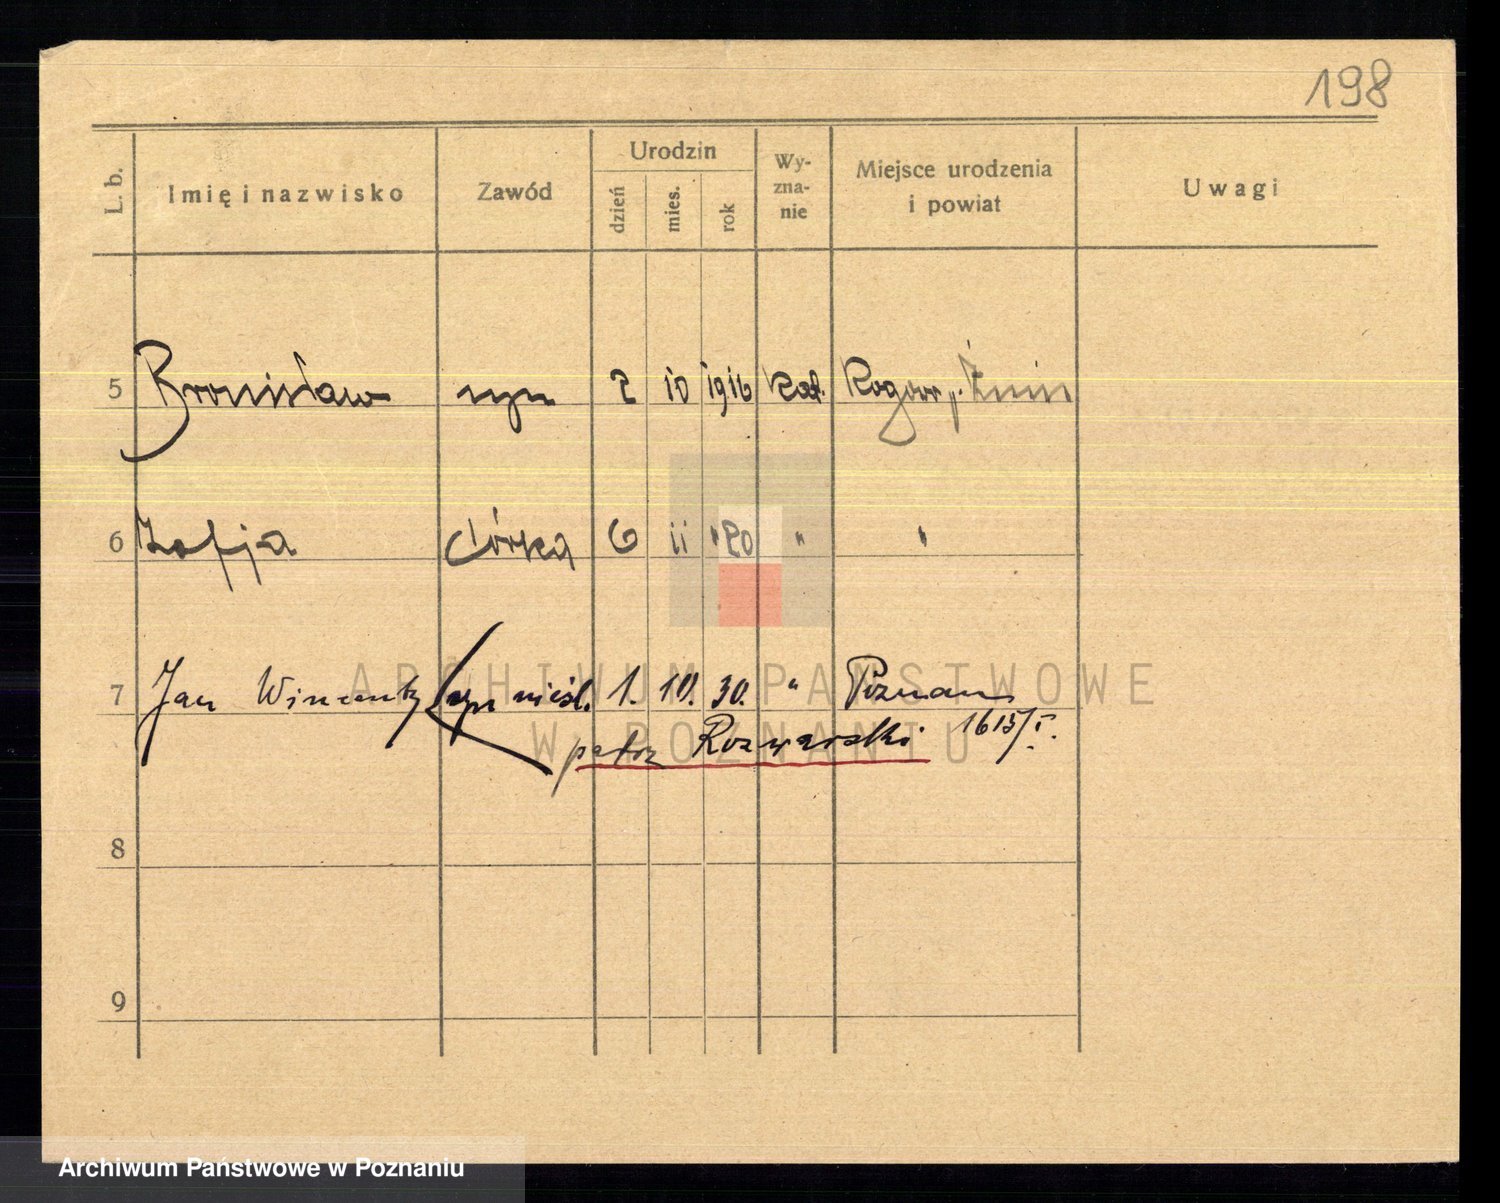 198
L. b. Imię i nazwisko Zawód Urodzin dzień mies. rok Wy-zna-nie Miejsce urodzenia i powiat Uwagi
5 Bronisław syn 2 10 1916 kat. Rogowo p. Żnin
6 Zofja córka 6 11 "20 " "
7 Jan Wincenty syn nieśl. 1. 10. 30. " Poznań
patrz Rozwarski 1615/I.
8
9
ARCHIWUM PAŃSTWOWE
W POZNANIU
Archiwum Państwowe w Poznaniu